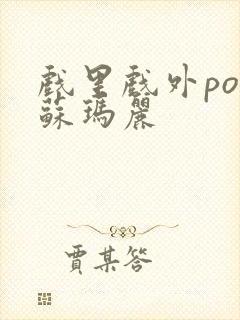 戲里戲外po
蘇瑪麗
賈某答